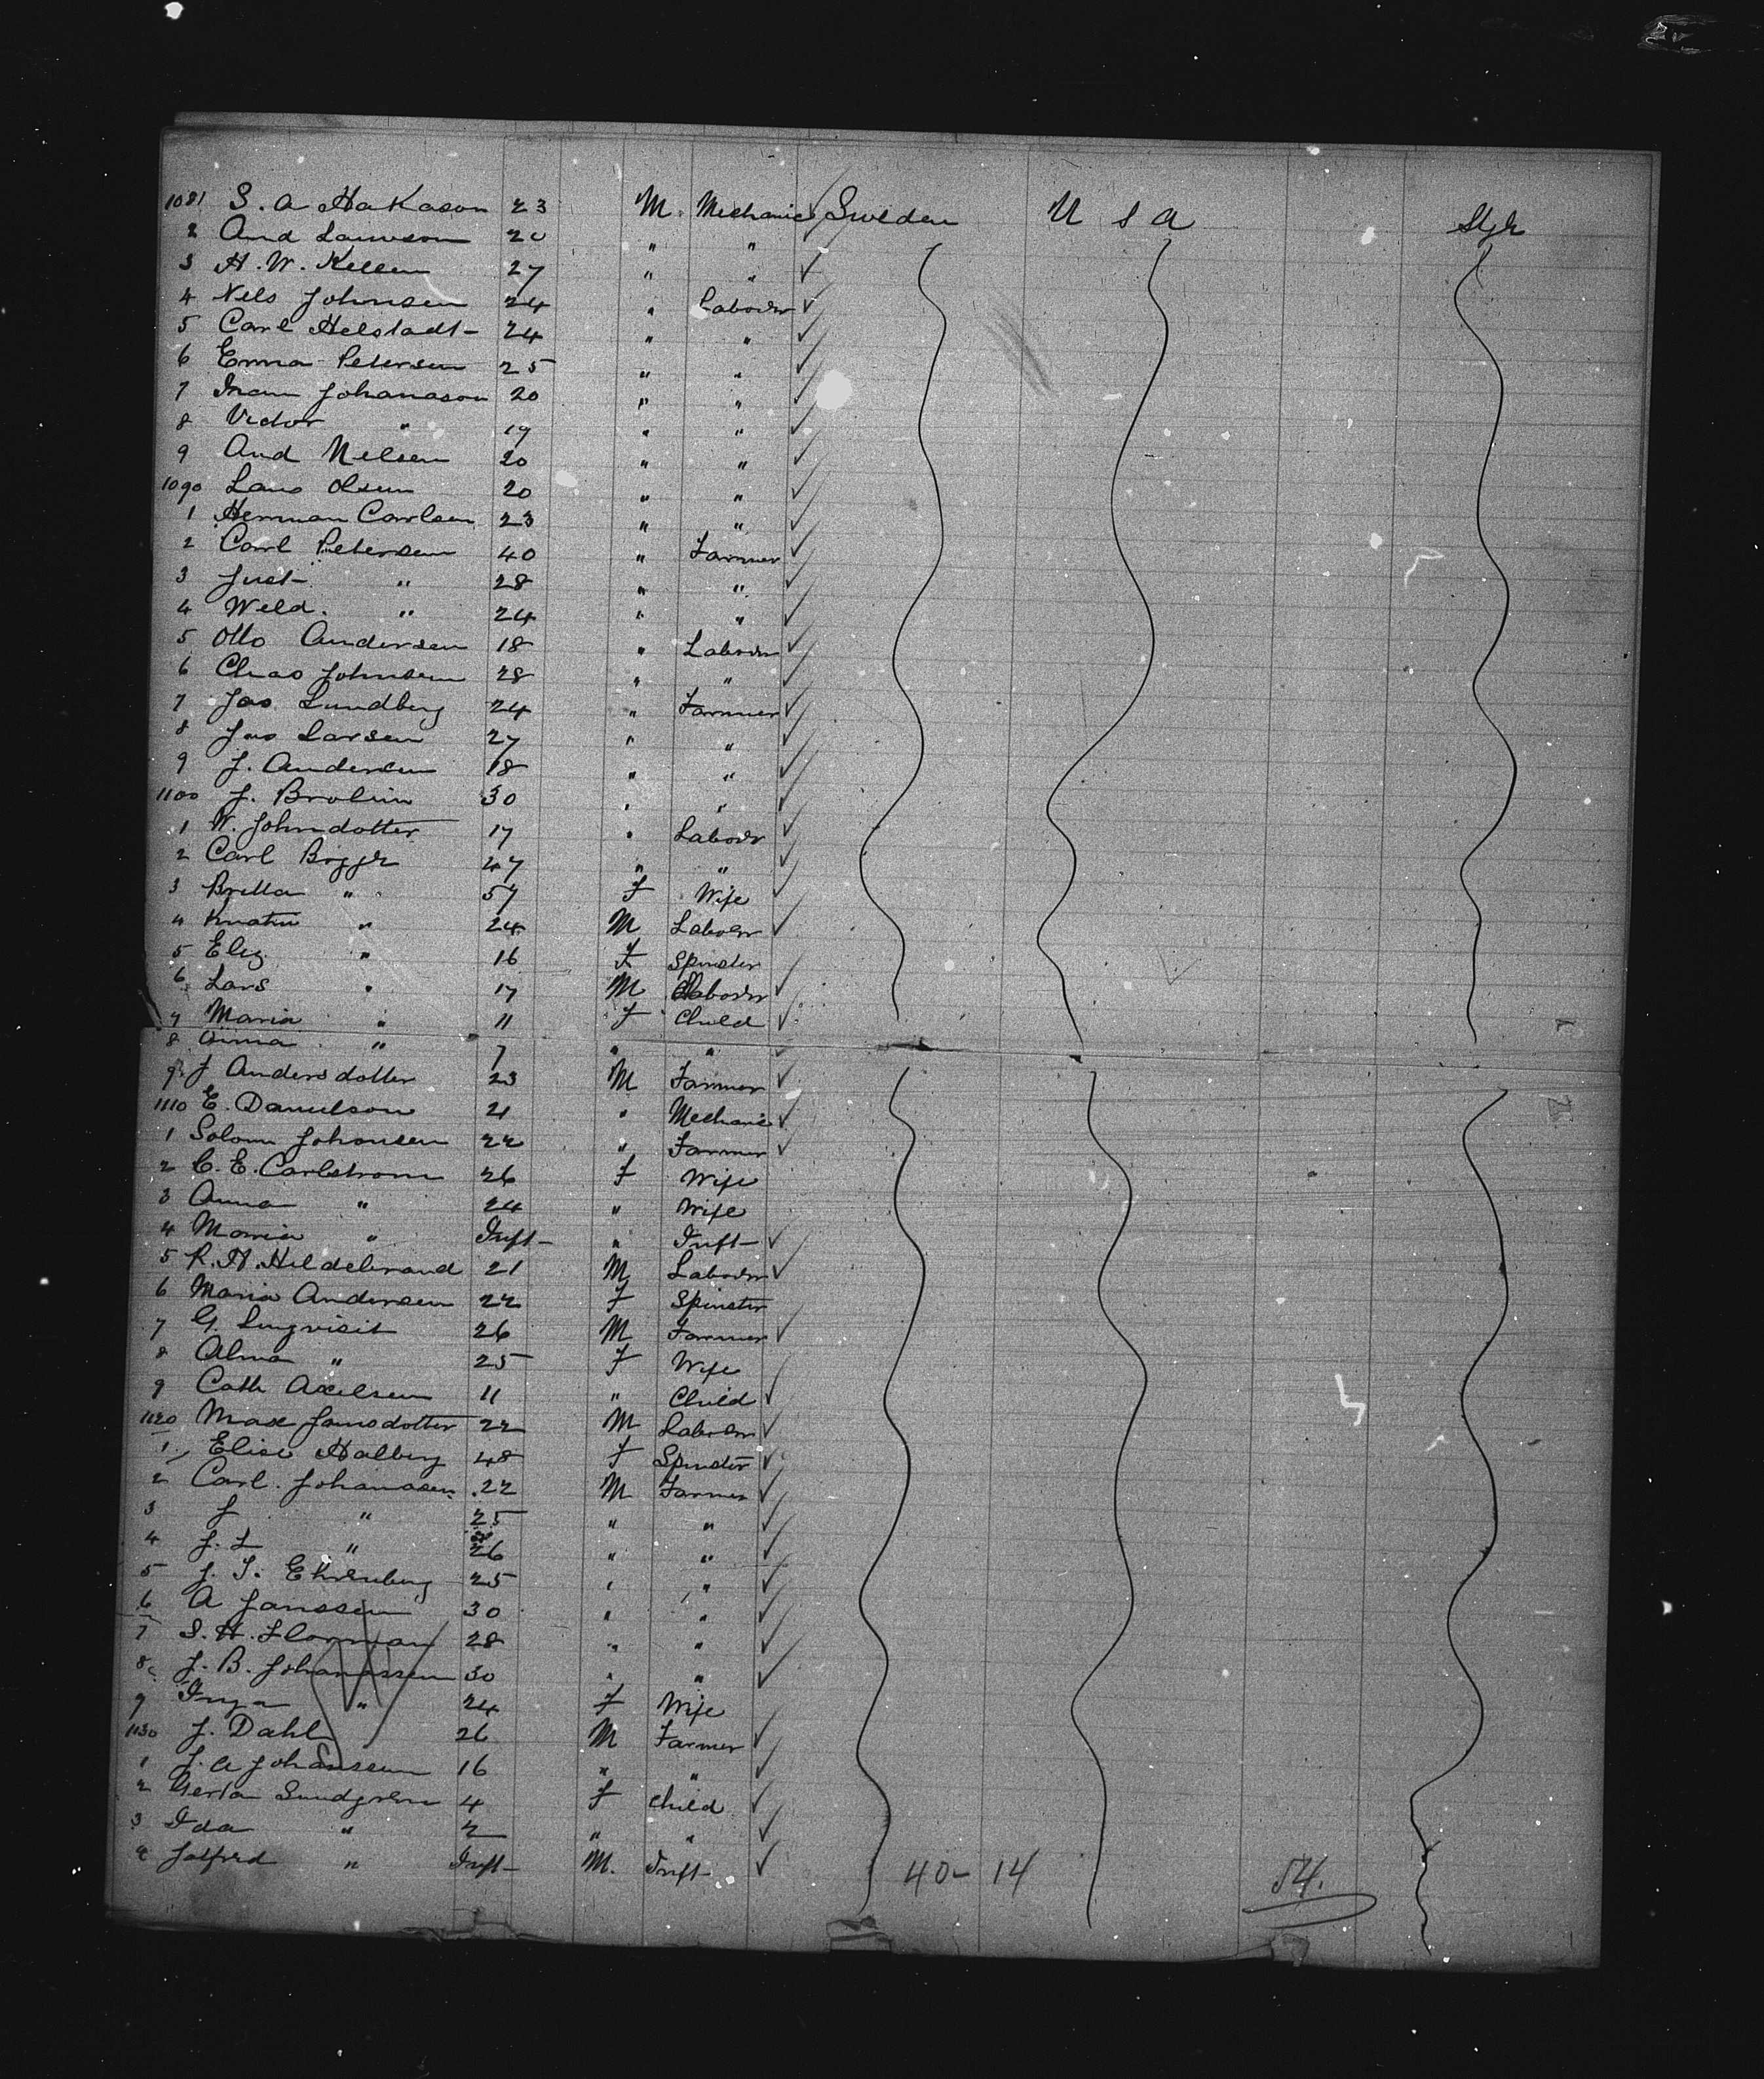 1081 S. A Hakason 23 M. Mechanic Sweden U S A Stge
2 And 20 " "
3 H. W. 27 " "
4 Nels Johnsen 24 " Laborer
5 Carl Helstadt 24 " "
6 Emma Petersen 25 " "
7 Johanason 20 " "
8 Victor " 19 " "
9 And Nelsen 20 " "
1090 Lars Olsen 20 " "
1 Herman Carlsen 23 " "
2 Carl Petersen 40 " Farmer
3 Just " 28 " "
4 Weld. " 24 " "
5 Otto Andersen 18 " Laborer
6 Chas Johnsen 28 " "
7 Jas Lundberg 24 " Farmer
8 Larsen 27 " "
9 J. Andersen 18 " "
1100 J. Brolin 30 " "
1 W. Johndotter 17 " Laborer
2 Carl 47 " "
3 Britta " 57 F Wife
4 " 24 M Laborer
5 Eliz " 16 F Spinster
6 Lars " 17 M Laborer
7 Maria " 11 F Child
8 " 7 " "
9 J Andersdotter 23 M Farmer
1110 E. Danielson 21 " Mechanic
1 Solom Johansen 22 " Farmer
2 C. E. Carlstrom 26 F Wife
3 Anna " 24 " Wife
4 Maria " Inft " Inft
5 R. H. Hildebrand 21 M Laborer
6 Maria Andersen 22 F Spinster
7 G. Lingvisit 26 M Farmer
8 Alma " 25 F Wife
9 Cath Axelsen 11 " Child
1120 Max Jansdotter 22 M Laborer
1 Elise Halberg 48 F Spinster
2 Carl. Johanasen 22 M Farmer
3 J " 25 " "
4 J. L " 26 " "
5 J. S. Ehrenberg 25 " "
6 A Janssen 30 " "
7 S. H. Florman 28 " "
8 J. B. Johanassen 30 " "
9 Inga " 24 F Wife
1130 J. Dahl 26 M Farmer
1 J. A Johansen 16 " "
2 Gerta Sundgren 4 F Child
3 Ida " 2 " "
4 " Inft M. Inft 40 - 14 54.